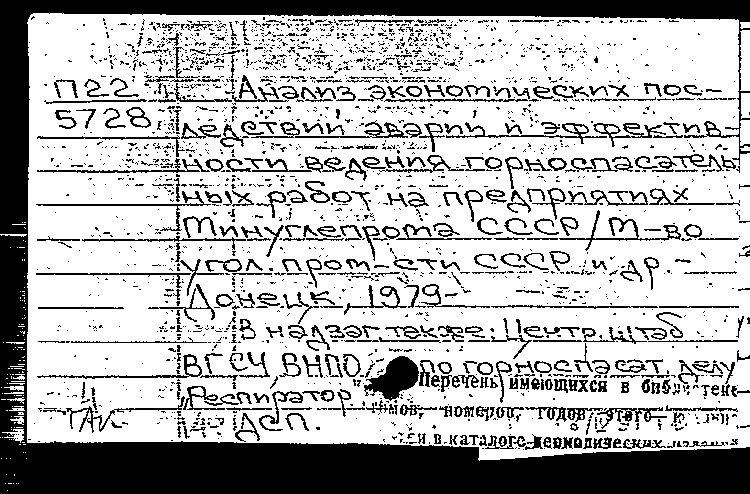 П22 Анализ экономических пос-
5728 ледствий аварий и эффектив-
ности ведения горноспасатель
ных работ на предприятиях
Минуглепрома СССР/М-во
угол. пром-сти СССР и др. -
Донецк, 1979-
В надзаг. также: Центр. штаб
ВГСЧ ВНПО по горноспасат. делу
„Респиратор" Перечень имеющихся в
томов, номеров, годов, этого
ДСП.
и в каталоге периодических